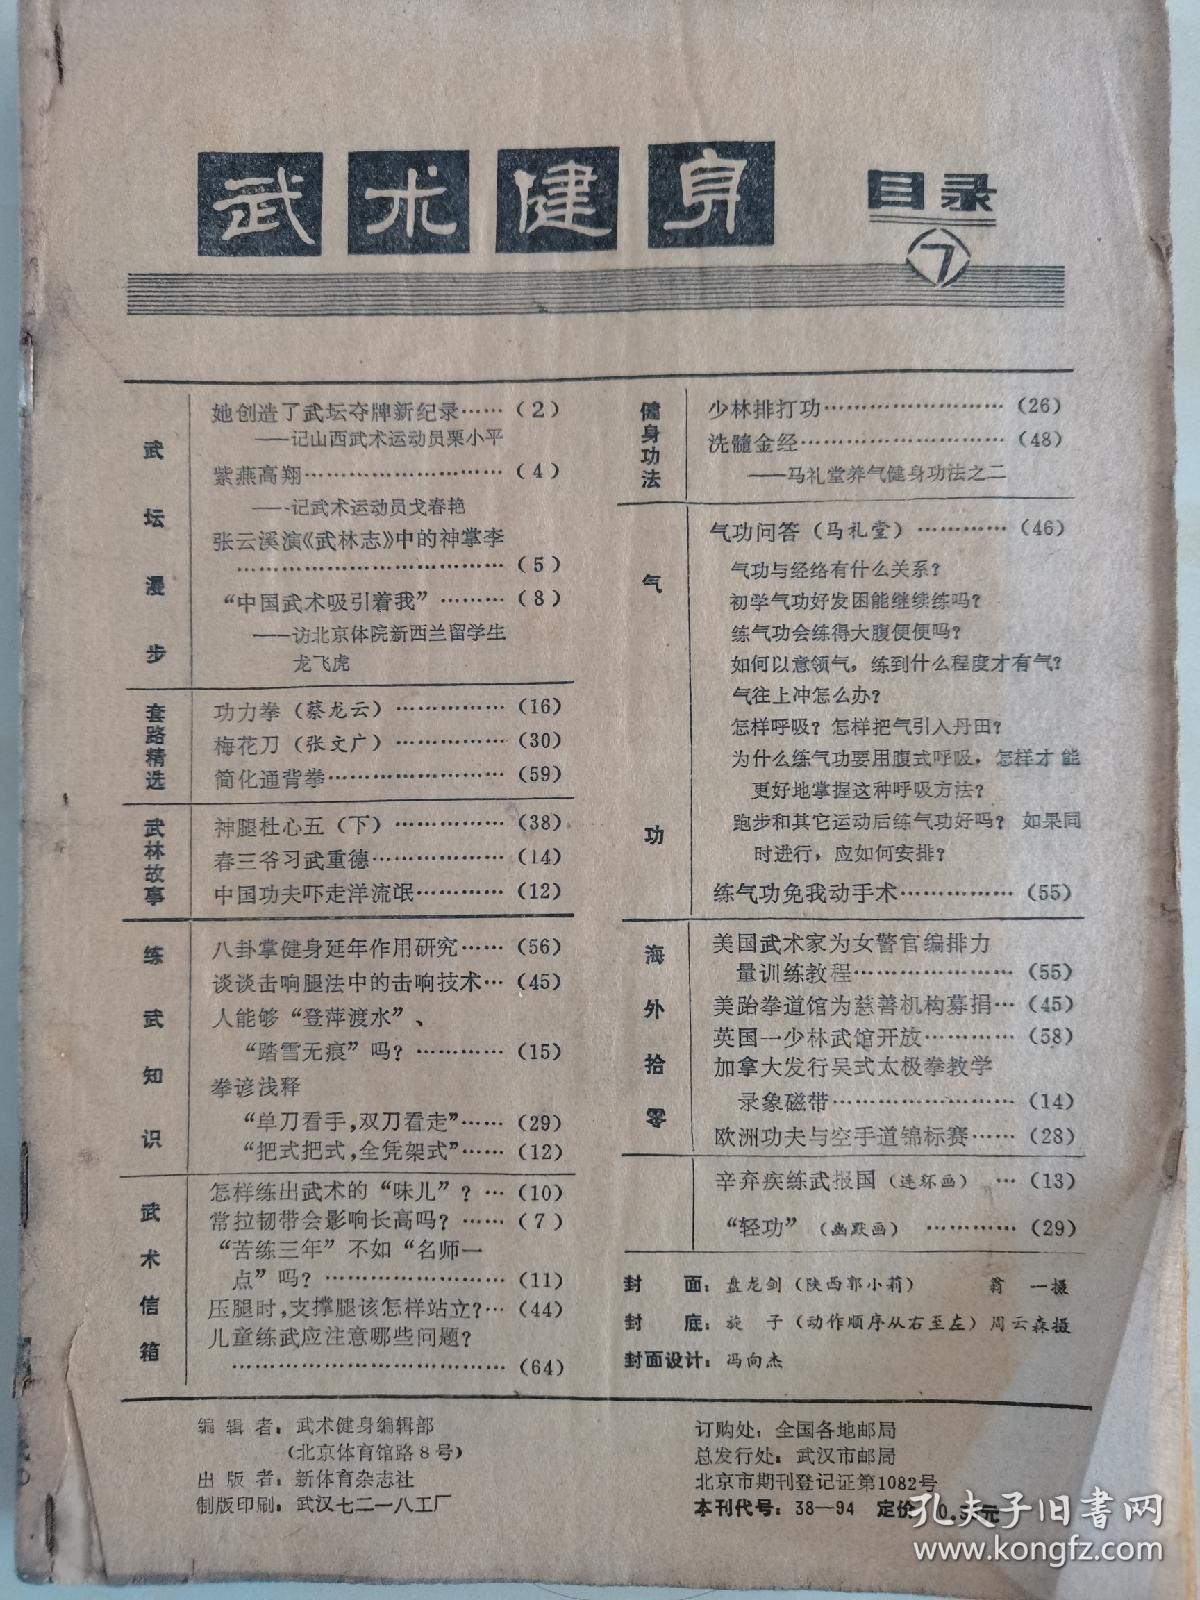 武术健身
目录
7
武坛漫步
她创造了武坛夺牌新纪录……(2)
——记山西武术运动员栗小平
紫燕高翔……………………(4)
——记武术运动员戈春艳
张云溪演《武林志》中的神掌李
………………………………(5)
“中国武术吸引着我”………(8)
——访北京体院新西兰留学生
龙飞虎
套路精选
功力拳（蔡龙云）……………(16)
梅花刀（张文广）……………(30)
简化通背拳……………………(59)
武林故事
神腿杜心五（下）……………(38)
春三爷习武重德………………(14)
中国功夫吓走洋流氓…………(12)
练武知识
八卦掌健身延年作用研究……(56)
谈谈击响腿法中的击响技术…(45)
人能够“登萍渡水”、
“踏雪无痕”吗？…………(15)
拳谚浅释
“单刀看手,双刀看走”……(29)
“把式把式,全凭架式”……(12)
武术信箱
怎样练出武术的“味儿”？…(10)
常拉韧带会影响长高吗？……(7)
“苦练三年”不如“名师一
点”吗？……………………(11)
压腿时,支撑腿该怎样站立？…(44)
儿童练武应注意哪些问题？
………………………………(64)
健身功法
少林排打功……………………(26)
洗髓金经………………………(48)
——马礼堂养气健身功法之二
气功
气功问答（马礼堂）…………(46)
气功与经络有什么关系？
初学气功好发困能继续练吗？
练气功会练得大腹便便吗？
如何以意领气，练到什么程度才有气？
气往上冲怎么办？
怎样呼吸？怎样把气引入丹田？
为什么练气功要用腹式呼吸，怎样才能
更好地掌握这种呼吸方法？
跑步和其它运动后练气功好吗？ 如果同
时进行，应如何安排？
练气功免我动手术……………(55)
海外拾零
美国武术家为女警官编排力
量训练教程…………………(55)
美跆拳道馆为慈善机构募捐…(45)
英国一少林武馆开放…………(58)
加拿大发行吴式太极拳教学
录象磁带……………………(14)
欧洲功夫与空手道锦标赛……(28)
辛弃疾练武报国（连环画）…(13)
“轻功”（幽默画）…………(29)
封 面：盘龙剑（陕西郭小莉） 翁 一摄
封 底：旋 子（动作顺序从右至左）周云森摄
封面设计：冯向杰
编辑者：武术健身编辑部
(北京体育馆路8号)
出版者：新体育杂志社
制版印刷：武汉七二一八工厂
订购处：全国各地邮局
总发行处：武汉市邮局
北京市期刊登记证第1082号
本刊代号：38—94 定价 0.3 元
孔夫子旧书网
www.kongfz.com